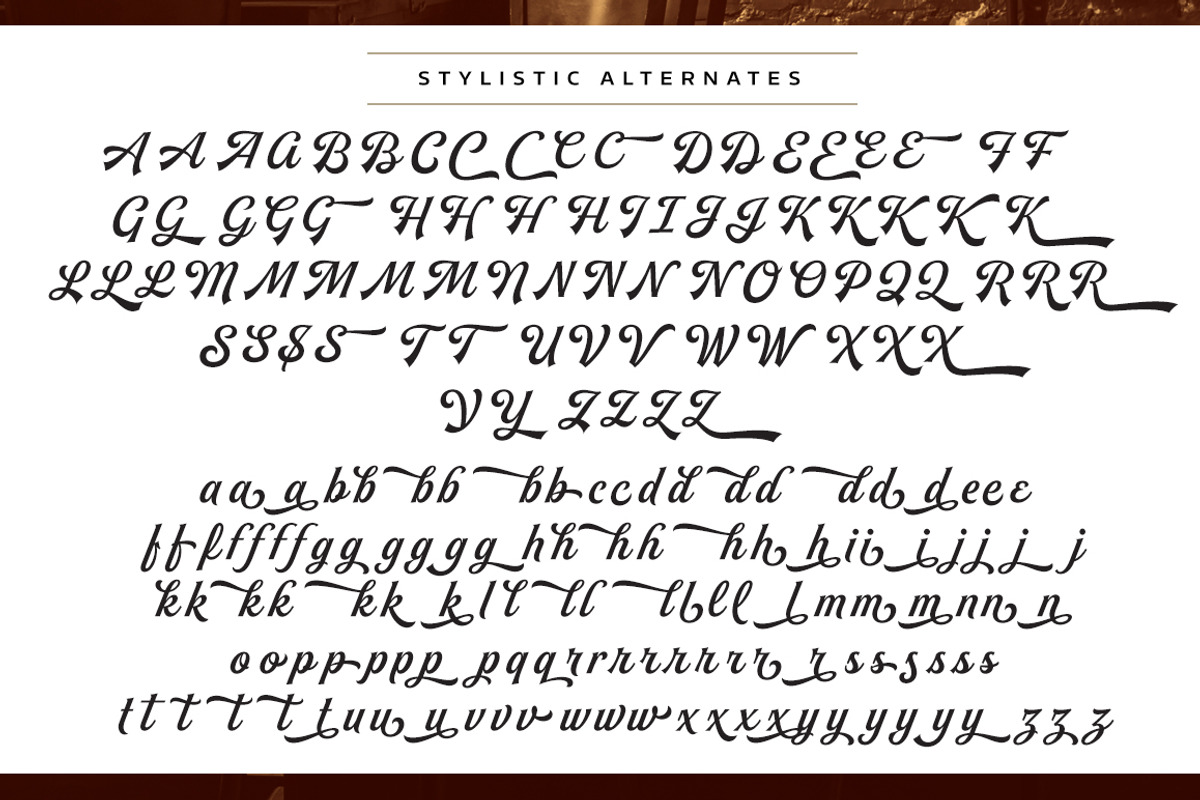 STYLISTIC ALTERNATES
A A A A B B C C C C C D D E E E E F F
G G G G G H H H H I I J J K K K K K
L L L M M M M M N N N N N O O P Q Q R R R
S S $ S T T U V V W W X X X
Y Y Z Z Z Z
a a a b b b b b b c c d d d d d d d e e e
f f f f f f f g g g g g g h h h h h h h i i i j j j j
k k k k k k k l l l l l l l l l m m m n n n
o o p p p p p p q q r r r r r r r r r s s s s s s
t t t t t t u u u u v v v w w w x x x x y y y y y y z z z